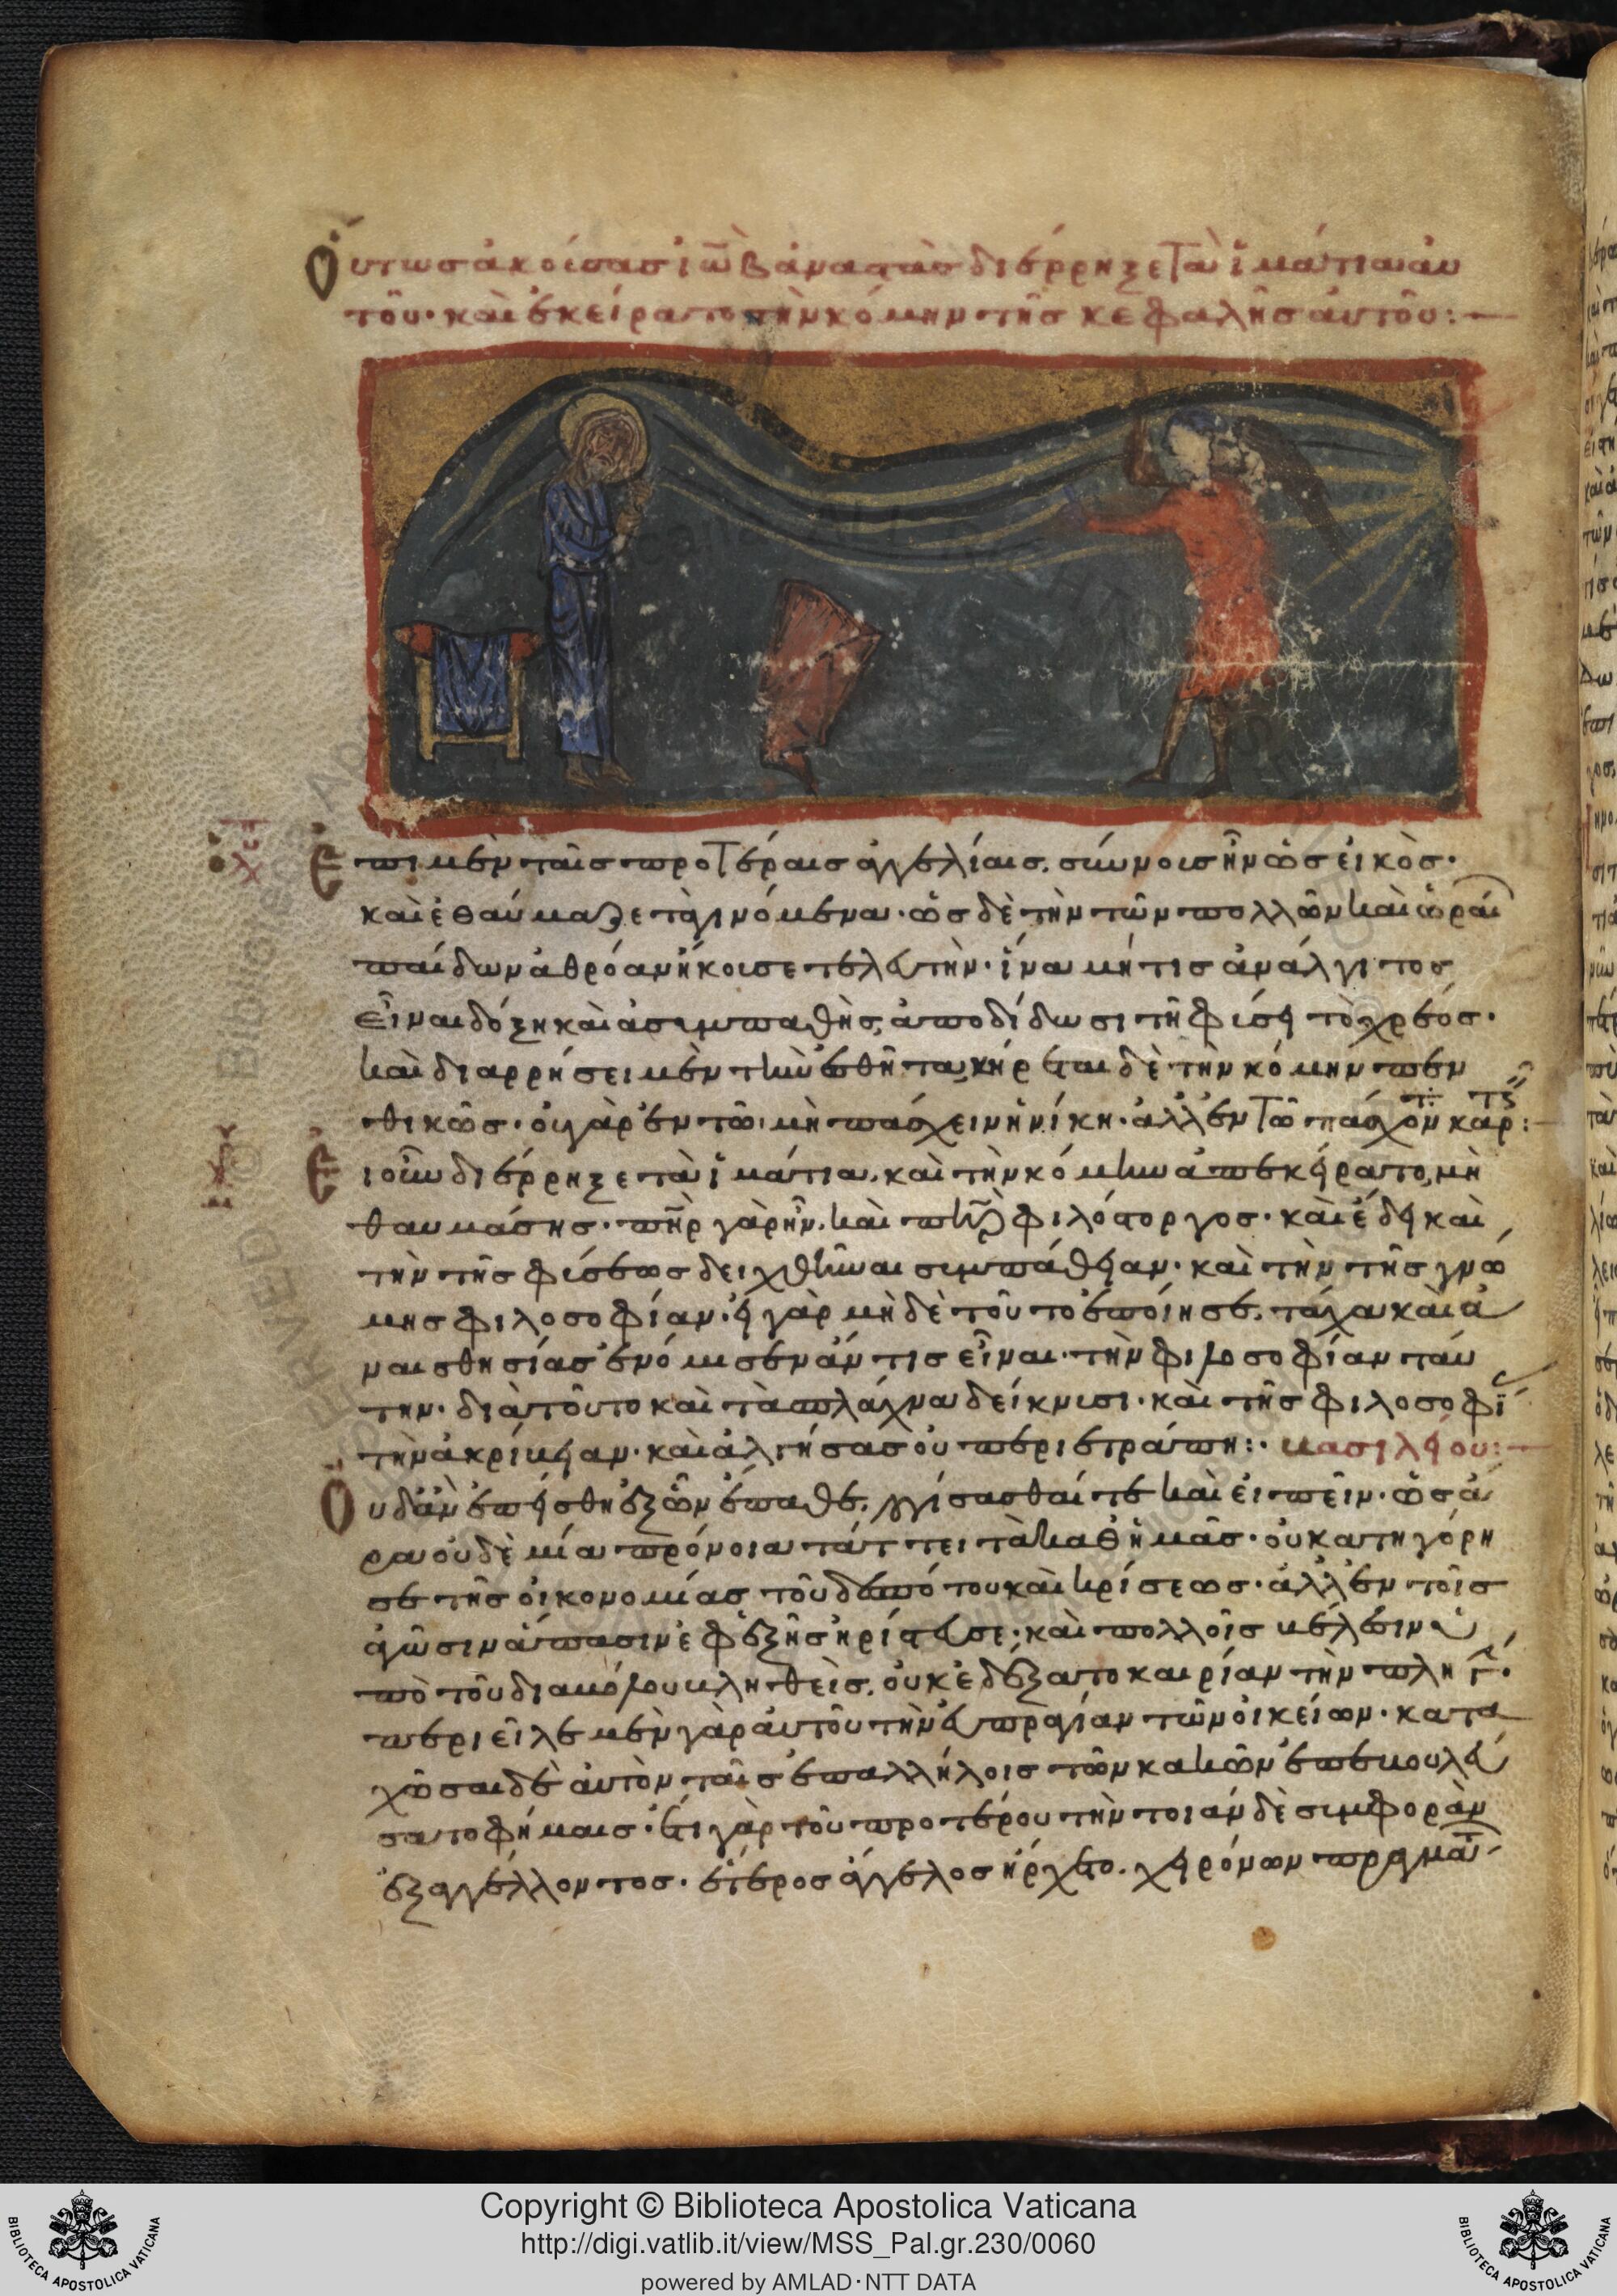 Οὕτως ἀκούσας ἰὼβ ἀναστὰς διέρρηξε τὰ ἱμάτια αὐ
τοῦ· καὶ ἐκείρατο τὴν κόμην τῆς κεφαλῆς αὐτοῦ:
Ἐπι μὲν ταῖς προτέραις ἀγγελίαις, σύννους ἦν ὡς εἰκὸς·
καὶ ἐθαύμαζε τὰ γινόμενα· ὡς δὲ τὴν τῶν πολλῶν καὶ ὡραί
παίδων ἀθρόαν ἤκουσε τελευτὴν· ἵνα μή τις ἀνάλγητος
εἶναι δόξη καὶ ἀσυμπαθὴς, ἀποδίδωσι τῆ φύσει τὸ χρέος·
καὶ διαρρήσει μὲν τὴν ἐσθῆτα, κήρεται δὲ τὴν κόμην πεν
θικῶς· οὐ γὰρ ἐν τῶ μὴ πάσχειν ἡ νίκη· ἀλλ' ἐν τῶ πάσχον καρ:
Εἰ οὖν διέρρηξε τὰ ἱμάτια, καὶ τὴν κόμην ἀπεκείρατο, μὴ
θαυμάσης· πὴρ γὰρ ἦν, καὶ πὴρ φιλόστοργος· καὶ ἔδει καὶ
τὴν τῆς φύσεως δειχθῆναι συμπάθειαν· καὶ τὴν τῆς γνώ
μης φιλοσοφίαν· εἰ γὰρ μὴ δὲ τοῦτο ἐποίησε, τάχα καὶ ἀ
ναισθησίας ἐνόμισεν ἄν τις εἶναι τὴν φιλοσοφίαν ταύ
την· διὰ τοῦτο καὶ τὰ σπλάχνα δείκνυσι· καὶ τῆς φιλοσοφί
τὴν ἀκρίβειαν· καὶ ἀλγήσας οὐ περιετράπη: βασιλείου:
Οὐδ' ἂν ἐπείσθη ἐξ ὧν ἔπαθε, λογίσασθαί τε καὶ εἰπεῖν· ὡς ἄ
ρα οὐδὲ μία πρόνοια τάττει τὰ καθ' ἡμᾶς· οὐ κατηγόρη
σε τῆς οἰκονομίας τοῦ δεσπότου καὶ κρίσεως· ἀλλ' ἐν τοῖς
ἀγῶσιν ἅπασιν ἐφεξῆς ἠρίστευσε· καὶ πολλοῖς βέλεσιν ὑ
πὸ τοῦ διαβόλου βληθεὶς, οὐκ ἐδέξατο καιρίαν τὴν πληγ·
περιεῖλε μὲν γὰρ αὐτοῦ τὴν εὐπραγίαν τῶν οἰκείων· κατα
χῶσαι δὲ αὐτὸν ταῖς ἐπαλλήλοις τῶν κακῶν ἐπεβουλεύ
σατο φήμαις· ἔτι γὰρ τοῦ προτέρου τὴν τοιάνδε συμφορὰν
ἐξαγγέλλοντος· ἕτερος ἄγγελος ἤρχετο, χειρόνων πραγμάτ
Copyright © Biblioteca Apostolica Vaticana
http://digi.vatlib.it/view/MSS_Pal.gr.230/0060
powered by AMLAD·NTT DATA
BIBLIOTECA APOSTOLICA VATICANA
BIBLIOTECA APOSTOLICA VATICANA